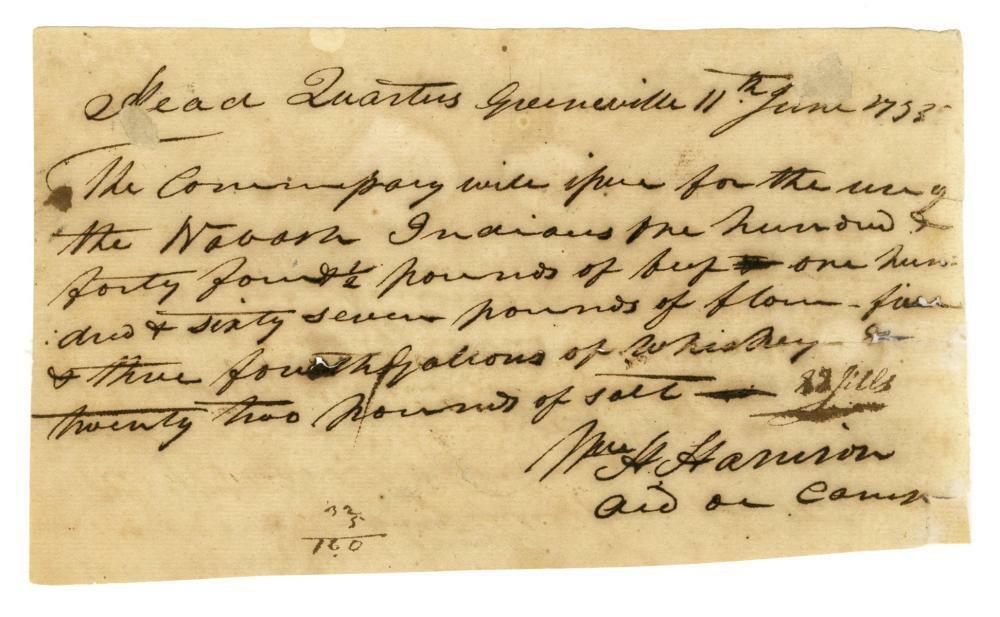 Head Quarters Greeneville 11th June 1795
The Commipary will ipue for the use of
the Wabash Indians one hundred &
forty four & 1/2 pounds of beef one hun=
dred & sixty seven pounds of flour - five
& three fourth Gallons of Whiskey - &
twenty two pounds of salt — 22 Jills
Wm H. Harrison
Aid de Camp
32
5
160